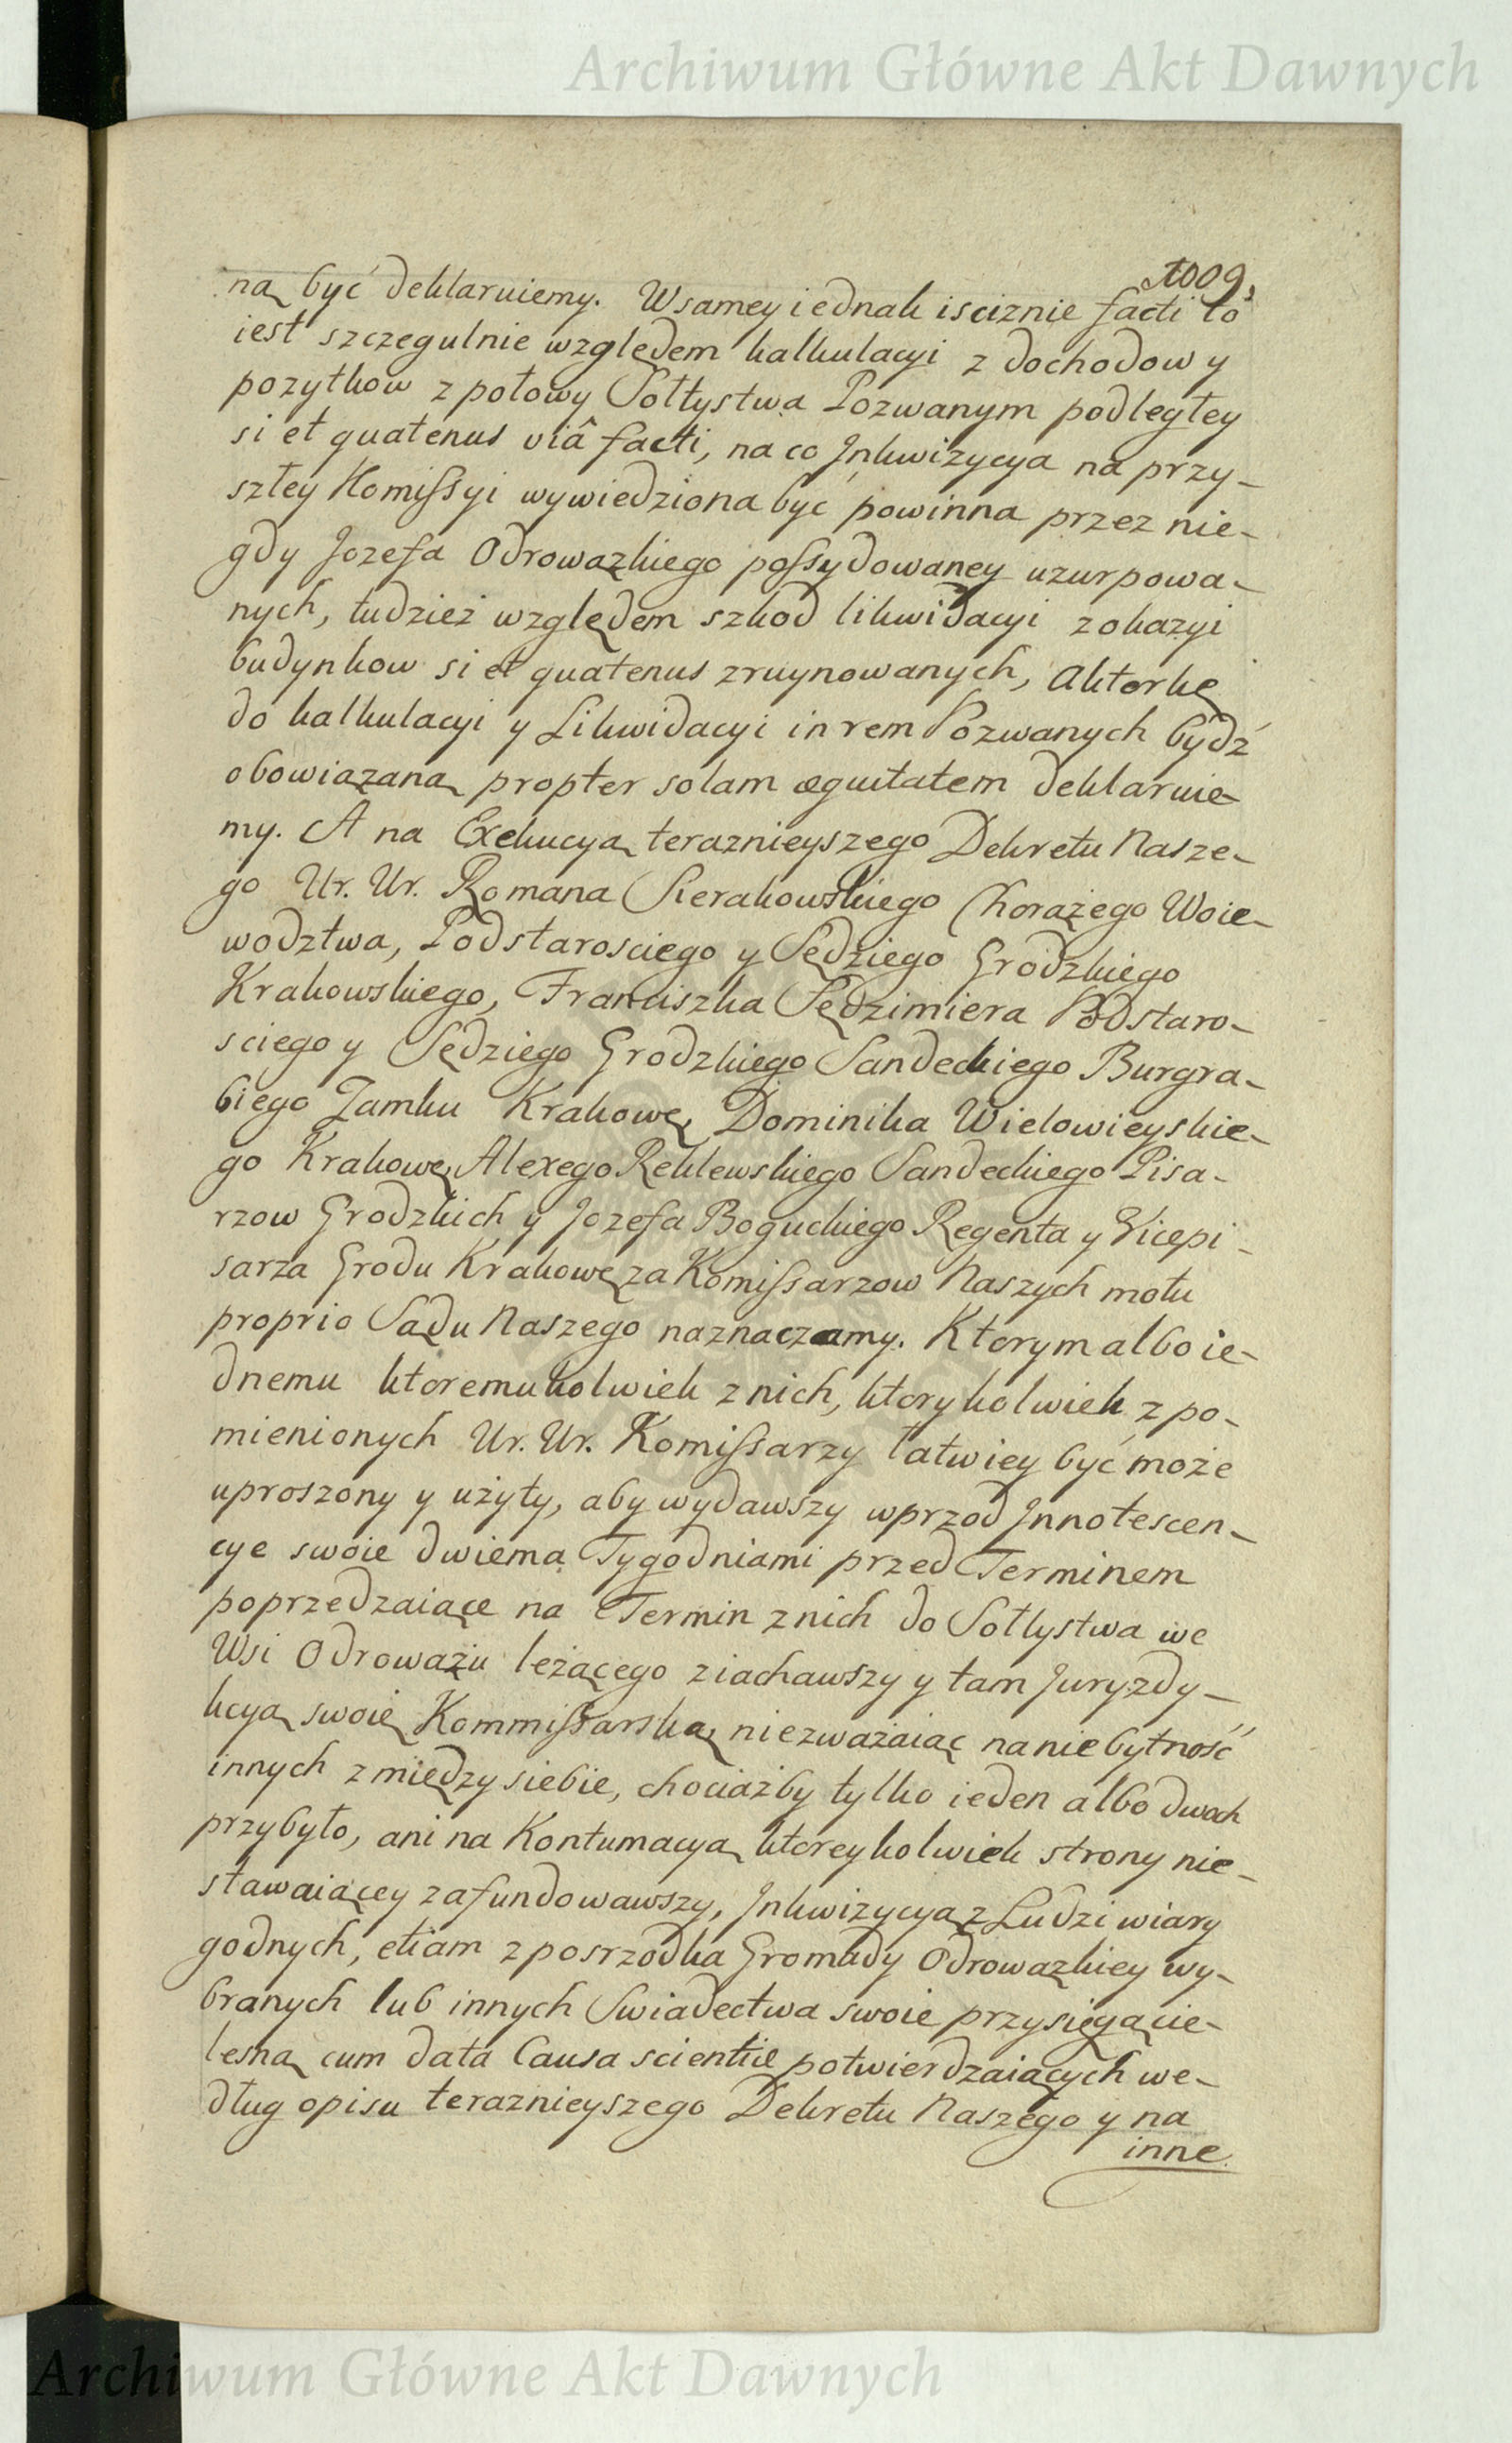 Archiwum Główne Akt Dawnych
1009,
ną być deklaruiemy. W samey iednak isciznie facti to
iest szczegulnie względem kalkulacyi z dochodow y
pozytkow z połowy Sołtystwa Pozwanym podległey
si et quatenus viâ facti, na co Inkwizycya na przy-
szłey Komissyi wywiedziona być powinna przez nie-
gdy Jozefa Odrowązkiego possydowaney uzurpowa-
nych, tudzież względem szkod likwidacyi z okazyi
budynkow si et quatenus zruynowanych, Aktorkę
do kalkulacyi y Likwidacyi in rem Pozwanych bydź
obowiązaną propter solam æquitatem deklaruie-
my. A na Exekucyą teraznieyszego Dekretu Nasze-
go Ur. Ur. Romana Sierakowskiego Chorążego Woie-
wodztwa, Podstarosciego y Sędziego Grodzkiego
Krakowskiego, Franciszka Sędzimiera Podstaro-
sciego y Sędziego Grodzkiego Sandeckiego Burgra-
biego Zamku Krakowę, Dominika Wielowieyskie-
go Krakowę, Alexego Reklewskiego Sandeckiego Pisa-
rzow Grodzkich y Jozefa Boguckiego Regenta y Vicepi-
sarza Grodu Krakowę za Komissarzow Naszych motu
proprio Sądu Naszego naznaczamy. Ktorym albo ie-
dnemu ktoremukolwiek z nich, ktorykolwiek z po-
mienionych Ur. Ur. Komissarzy łatwiey być może
uproszony y użyty, aby wydawszy wprzod Innotescen-
cye swoie dwiema Tygodniami przed Terminem
poprzedzaiące na Termin z nich do Sołtystwa we
Wsi Odrowążu leżącego ziachawszy y tam Juryzdy-
kcyą swoię Kommissarską niezważaiąc na niebytność
innych z między siebie, chociażby tylko ieden albo dwoch
przybyło, ani na Kontumacyą ktoreykolwiek strony nie-
stawaiącey zafundowawszy, Inkwizycyą z Ludzi wiary
godnych, etiam z posrzodka Gromady Odrowązkiey wy-
branych lub innych Swiadectwa swoie przysięgą cie-
lesną cum data Causa scientiæ potwierdzaiących we-
dług opisu teraznieyszego Dekretu Naszego y na
inne
Archiwum Główne Akt Dawnych